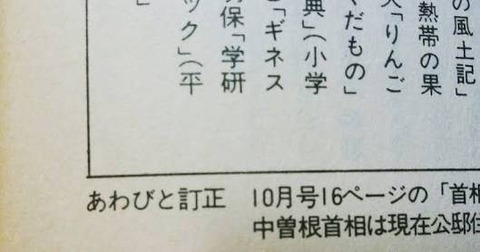 の風土記」
熱帯の果
「りんご
くだもの」
典」(小学
「ギネス
保「学研
ック」(平
」
あわびと訂正　10月号16ページの「首相
中曽根首相は現在公邸住